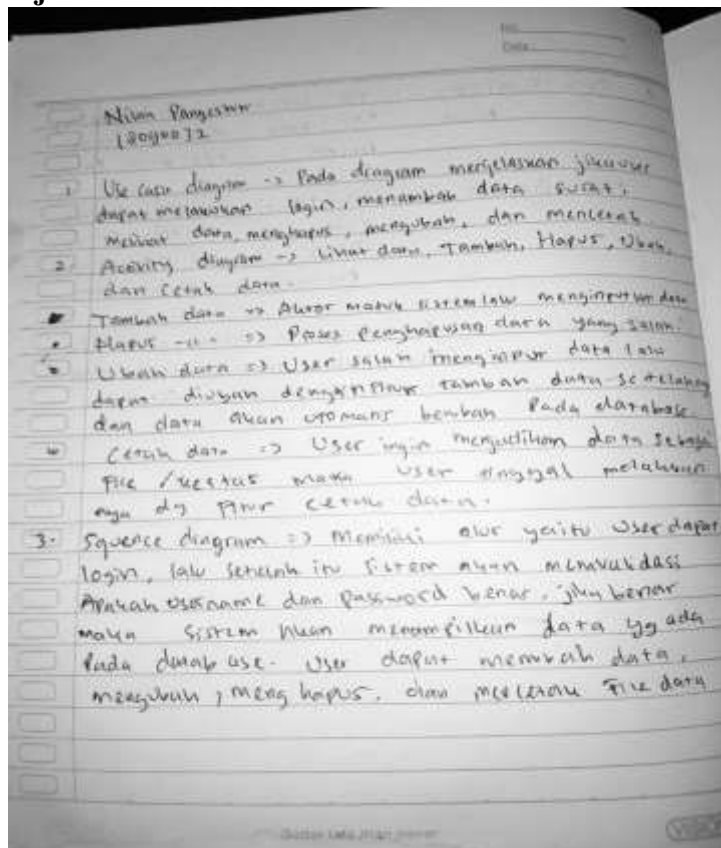 No.
Date:
Nilan Pangestu
1
Use case diagram -> Pada diagram menjelaskan jika user
dapat melakukan login, menambah data surat,
melihat data, menghapus, mengubah, dan mencetak
2. Activity diagram -> Lihat data, Tambah, Hapus, Ubah,
dan Cetak data.
Tambah data => Aktor masuk sistem lalu menginputkan data
Hapus -11- => Proses penghapusan data yang salah.
Ubah data => User salah menginput data lalu
dapat diubah dengan fitur tambah data
dan data akan otomatis berubah Pada database
Cetak data => User ingin menjadikan data sebagai
File / kertas maka user tinggal melakukan
dg Fitur cetak data.
3. Squence diagram => Memiliki alur yaitu User dapat
login, lalu setelah itu sistem akan memvalidasi
Apakah username dan password benar, jika benar
maka sistem akan menampilkan data yg ada
Pada database. User dapat data,
mengubah, menghapus, dan mencetak File data